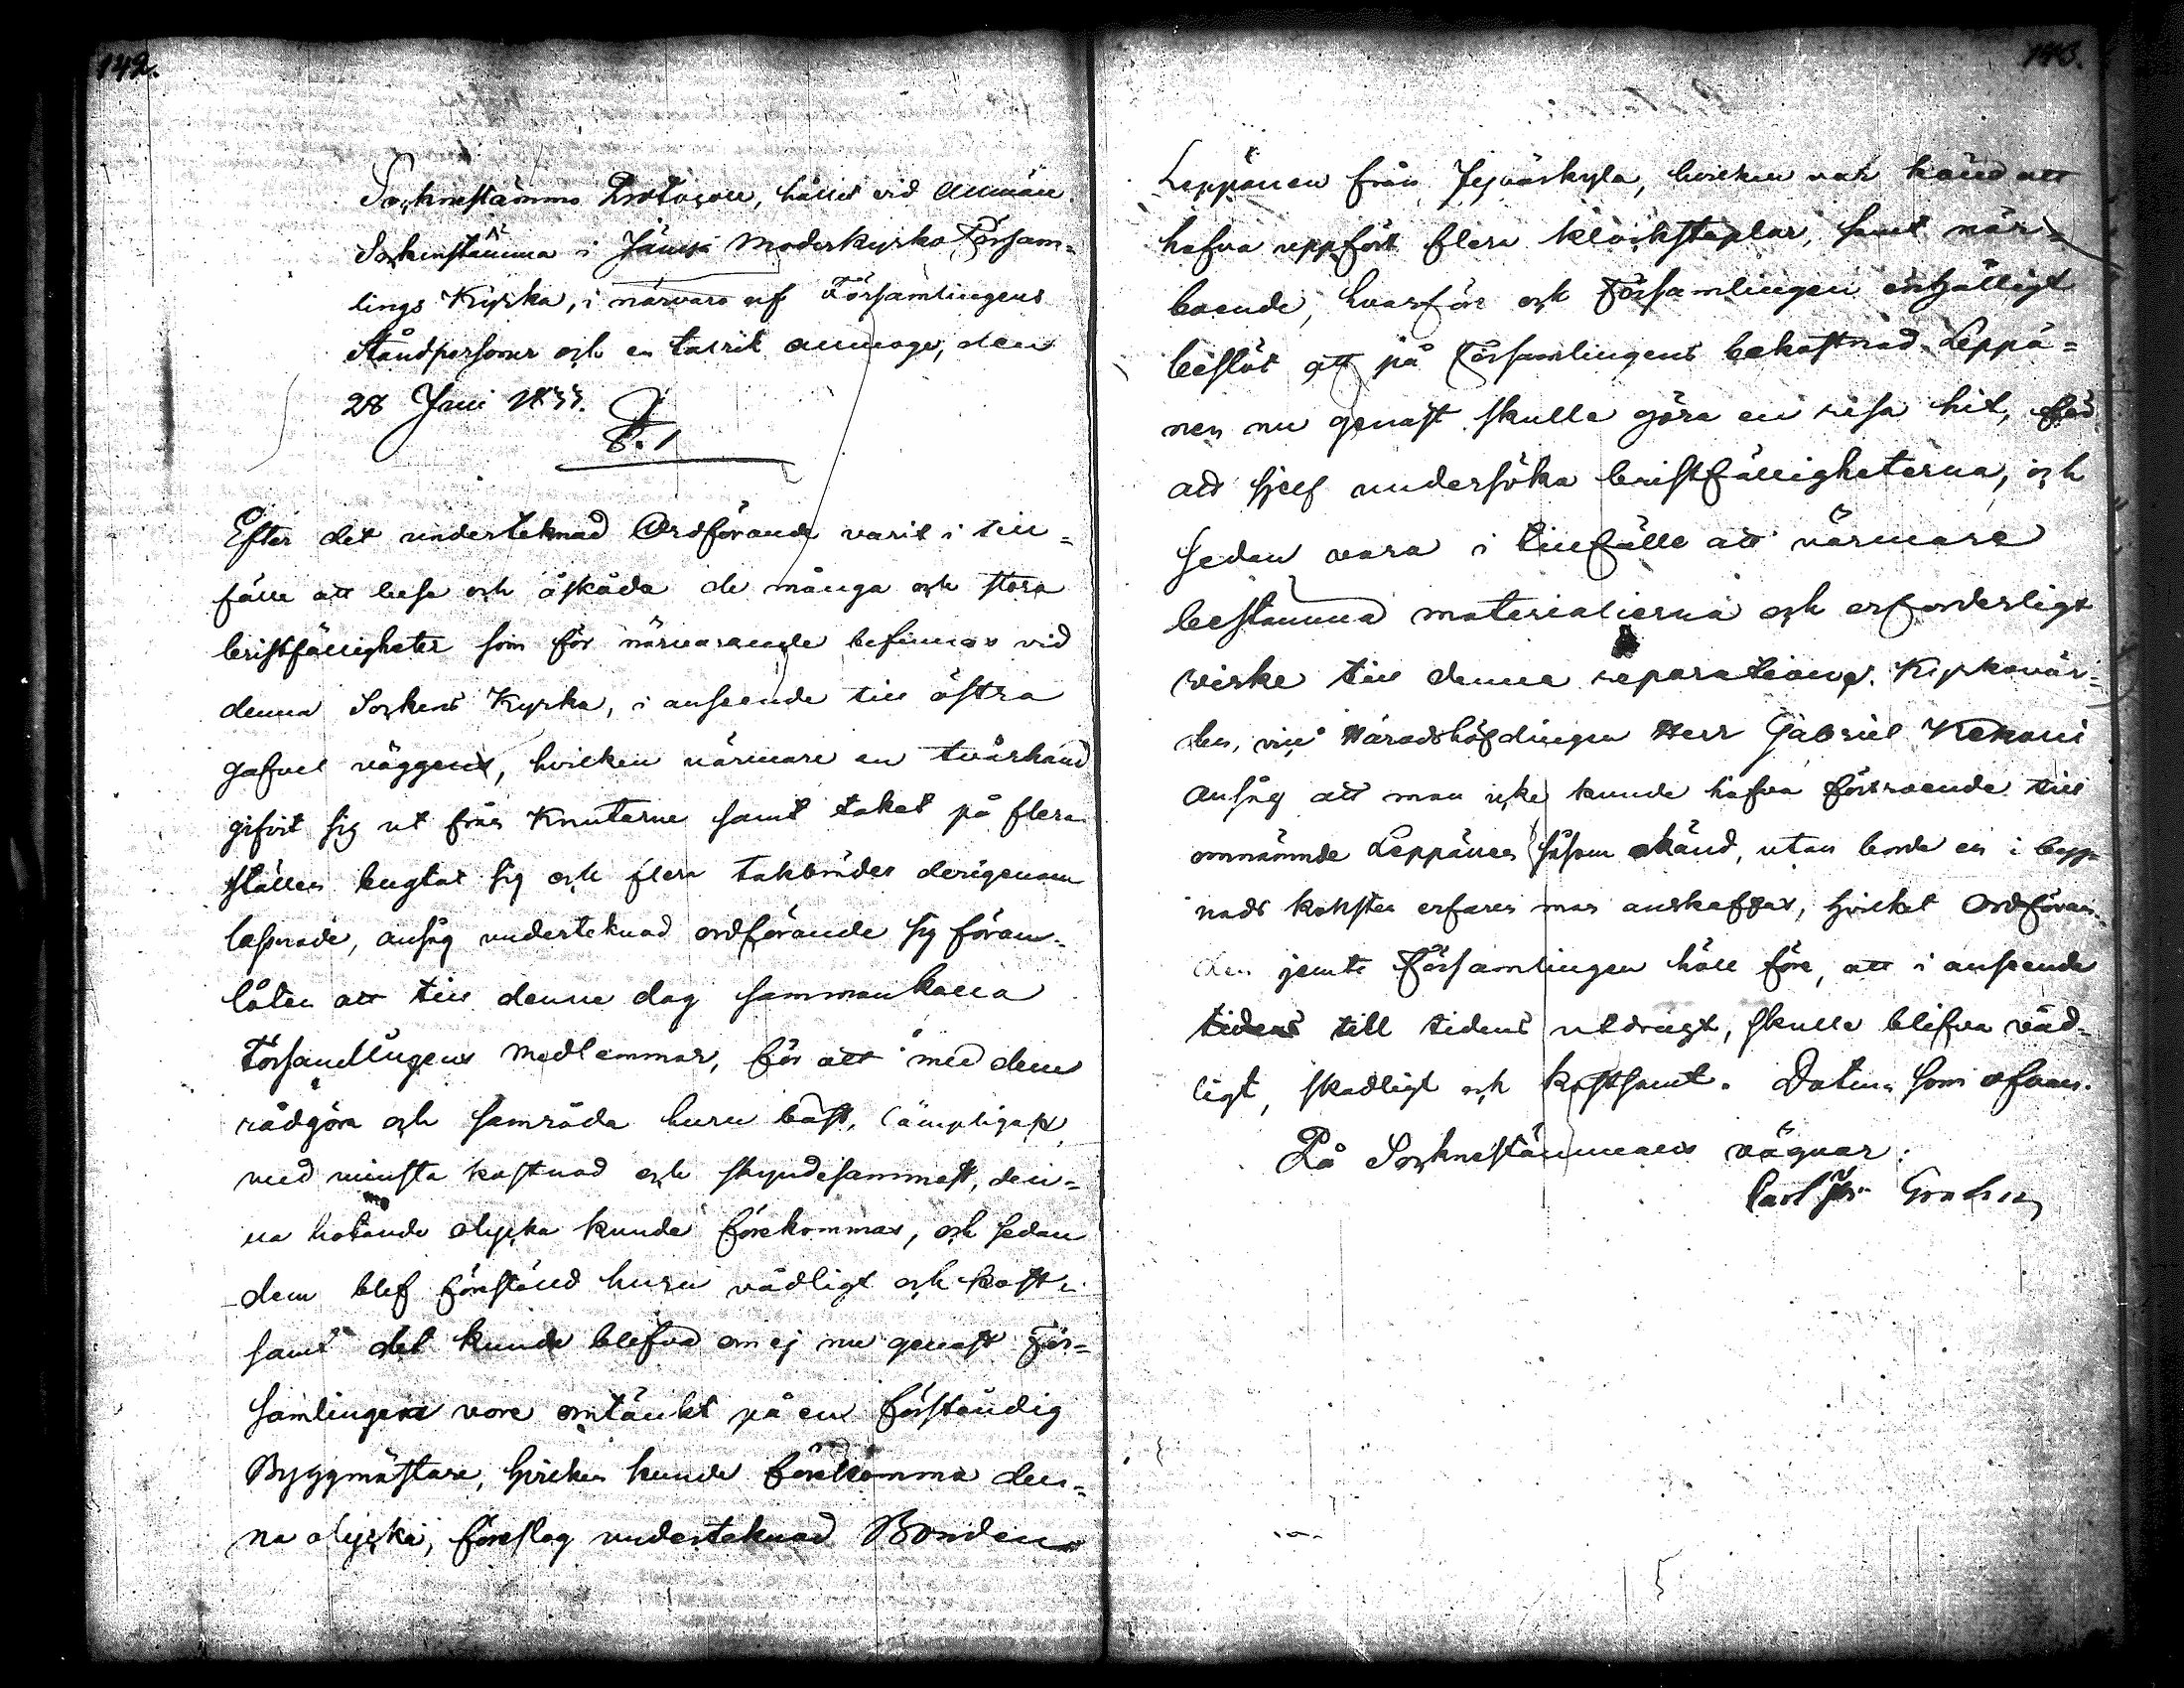 142.
Sockenstämmo Protocoll, hållit vid allmän
Sockenstämma i Jämsä Moderkyrko Försam=
lings Kyrka, i närvaro af Församlingens
ståndpersoner och en talrik allmoge, den
28 Juni 1833.
§. 1
Efter det undertecknad Ordförande varit i till=
fälle att bese och åskåda de många och stora
bristfälligheter som för närvarande befinnas vid
denna Sockens Kyrka, i anseende till östra
gafvel väggens, hvilken närmare en tvärhand
gifvit sig ut från Knutarne samt taket på flera
ställen bugtat sig och flera takbräder derigenom
lossnade, ansåg undertecknad ordförande sig föran=
låten att till denne dag sammankalla
Församlingens medlemmar, för att med dem
rådgöra och samråda huru bäst, lämpligast,
med minsta kostnad och skyndesammast, den=
na hotande olycka kunde förekommas, och sedan
dem blef förestäld huru vådligt och kost=
samt det kunde blifva om ej nu genast För=
samlingen vore omtänkt på en förståndig
Byggmästare, hvilken kunde förekomma den=
na olycka, föreslog undertecknad Bonden
143.
Leppänen från Jyväskylä, hvilken var känd att
hafva uppfört flera klockstaplar, samt när=
boende, hvarföre och Församlingen enhälligt
beslöt att på Församlingens bekostnad Leppä=
nen nu genast skulle göra en resa hit, för
att sjelf undersöka bristfälligheterna, och
sedan vara i tillfälle att närmare
bestämma materialierna och erforderligt
virke till denna reparation. Kyrkovär=
den, vice Häradshöfdingen Herr Gabriel
ansåg att man icke kunde hafva förtroende till
omnämnde Leppänen såsom okänd, utan borde en i bygg=
nads konsten erfaren man anskaffas, hvilket Ordföran=
den jemte Församlingen höll före, att i anseende
tidens till tidens utdrägt, skulle blifva våd=
ligt, skadligt och kostsamt. Datum som ofvan.
På Sockenstämmans vägnar:
Carl